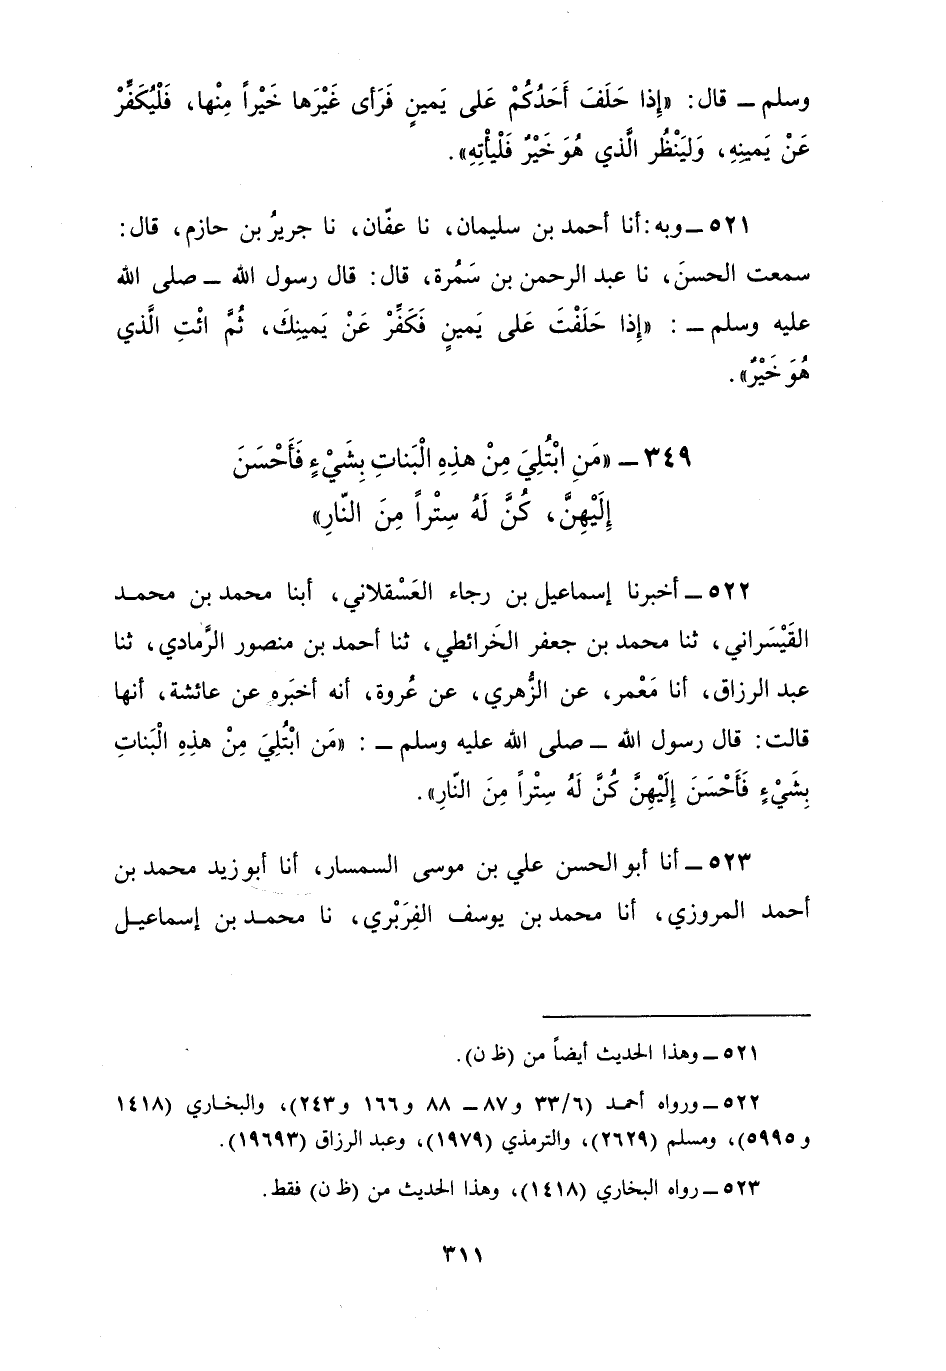 وسلم ــ قال: «إِذا حَلَفَ أَحَدُكُمْ عَلى يَمينٍ فَرَأى غَيْرَها خَيْراً مِنْها، فَلْيُكَفِّرْ
عَنْ يَمينِهِ، وَليَنْظُر الَّذي هُوَ خَيْرٌ فَلْيأْتِهِ».
٥٢١ ــ وبه: أنا أحمد بن سليمان، نا عفّان، نا جريرُ بن حازم، قال:
سمعت الحسنَ، نا عبد الرحمن بن سَمُرة، قال: قال رسول الله ــ صلى الله
عليه وسلم ــ : «إِذا حَلَفْتَ عَلى يَمينٍ فَكَفِّرْ عَنْ يَمينِكَ، ثُمَّ ائْتِ الَّذي
هُوَ خَيْرٌ».
٣٤٩ ــ «مَنِ ابْتُلِيَ مِنْ هذِهِ الْبَناتِ بِشَيْءٍ فَأَحْسَنَ
إِلَيْهِنَّ، كُنَّ لَهُ سِتْراً مِنَ النّارِ»
٥٢٢ ــ أخبرنا إسماعيل بن رجاء العَسْقلاني، أبنا محمد بن محمد
القَيْسَراني، ثنا محمد بن جعفر الخَرائطي، ثنا أحمد بن منصور الرَّمادي، ثنا
عبد الرزاق، أنا مَعْمر، عن الزُّهري، عن عُروة، أنه أخبَره عن عائشة، أنها
قالت: قال رسول الله ــ صلى الله عليه وسلم ــ : «مَن ابْتُلِيَ مِنْ هذِهِ الْبَناتِ
بِشَيْءٍ فَأَحْسَنَ إِلَيْهِنَّ كُنَّ لَهُ سِتْراً مِنَ النّارِ».
٥٢٣ ــ أنا أبو الحسن علي بن موسى السمسار، أنا أبو زيد محمد بن
أحمد المروزي، أنا محمد بن يوسف الفِرَبْري، نا محمد بن إسماعيل
٥٢١ ــ وهذا الحديث أيضاً من (ظ ن).
٥٢٢ ــ ورواه أحمد (٣٣/٦ و٨٧ ــ ٨٨ و١٦٦ و٢٤٣)، والبخاري (١٤١٨
و ٥٩٩٥)، ومسلم (٢٦٢٩)، والترمذي (١٩٧٩)، وعبد الرزاق (١٩٦٩٣).
٥٢٣ ــ رواه البخاري (١٤١٨)، وهذا الحديث من (ظ ن) فقط.
٣١١